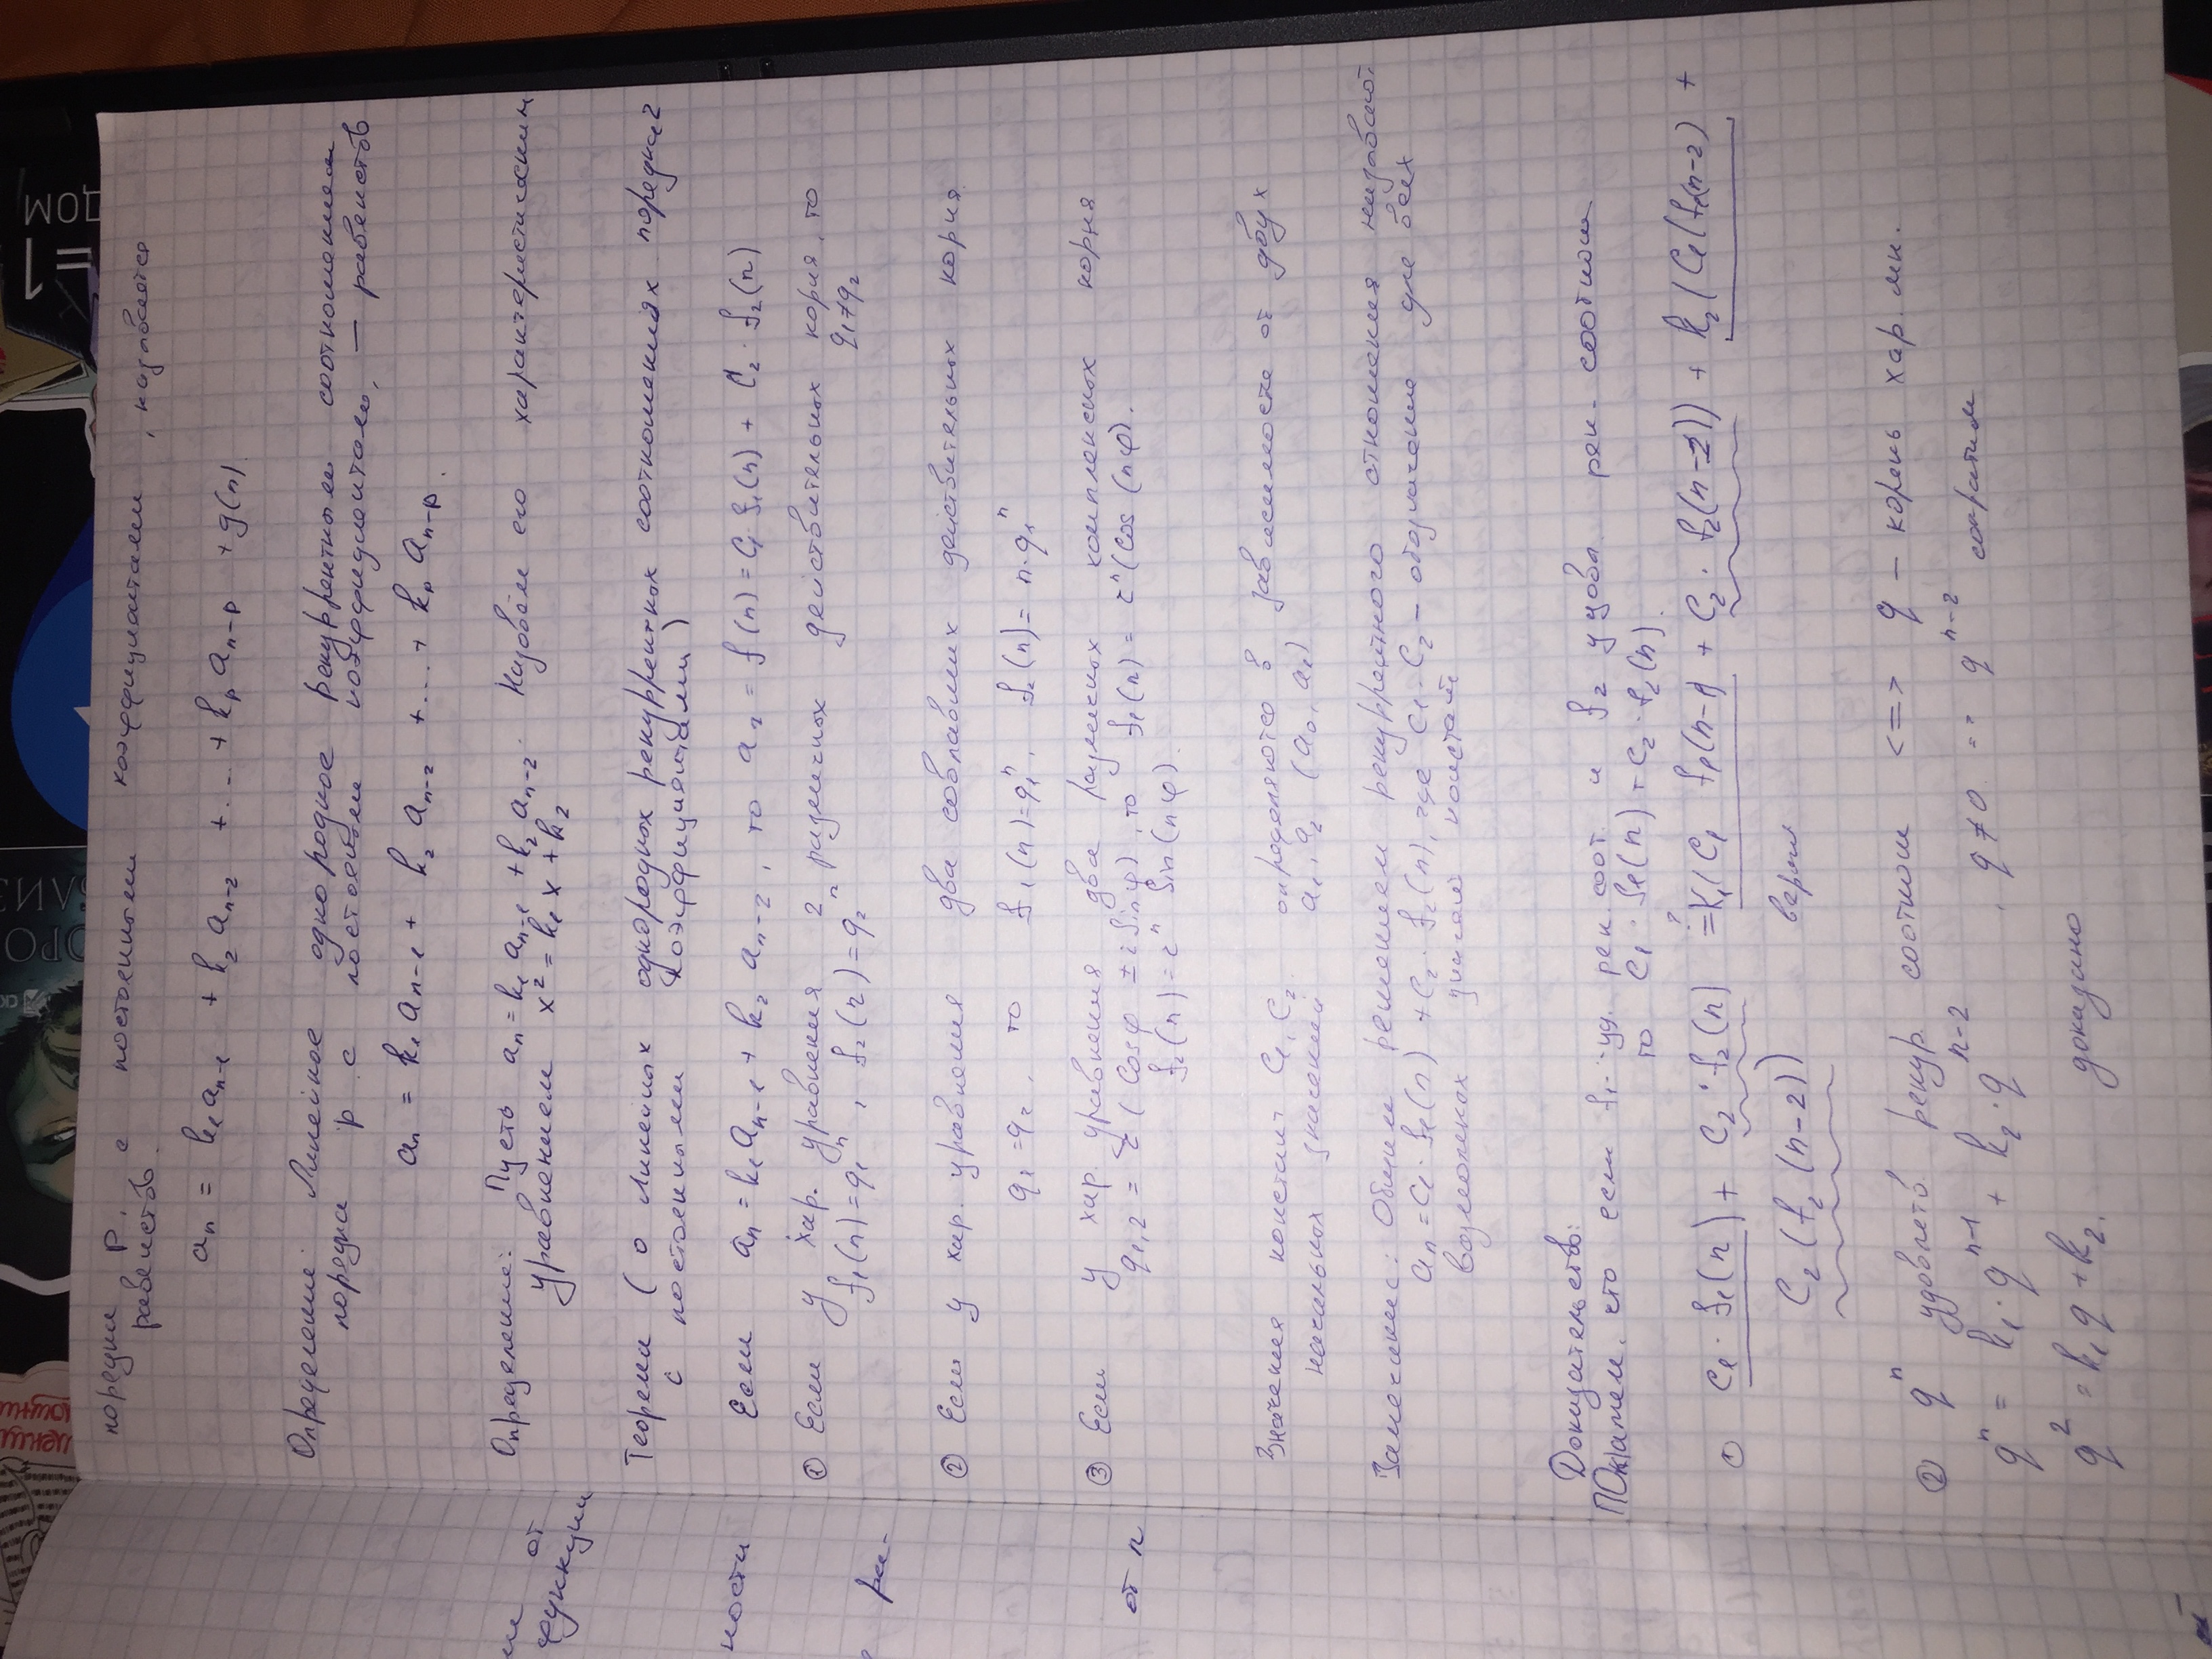 =1
ДОМ
порядка р, с постоянными коэффициентами, называется
равенство.
aₙ = k₁aₙ₋₁ + k₂aₙ₋₂ + ... + kₚaₙ₋ₚ + g(n).
Определение: Линейное однородное рекуррентным соотношением
порядка р с постоянными коэффициентами, — равенство
aₙ = k₁aₙ₋₁ + k₂aₙ₋₂ + ... + kₚaₙ₋ₚ.
Определение: Пусть aₙ = k₁aₙ₋₁ + k₂aₙ₋₂. Назовём его характеристическим
уравнением x² = k₁x + k₂
от
функции
Теорема (о линейных однородных рекуррентных соотношениях порядка 2
с постоянными коэффициентами)
ности
Если aₙ = k₁aₙ₋₁ + k₂aₙ₋₂, то a₂ = f(n) = C₁·f₁(n) + C₂·f₂(n)
① Если у хар. уравнения 2 различных действительных корня, то
f₁(n) = q₁ⁿ, f₂(n) = q₂ⁿ q₁≠q₂
ре-
② Если у хар. уравнения два совпавших действительных корня.
q₁ = q₂, то f₁(n) = q₁ⁿ, f₂(n) = n·q₁ⁿ
③ Если у хар. уравнения два различных комплексных корня
q₁,₂ = r(cosφ ± i sinφ), то f₁(n) = rⁿ(cos(nφ).
f₂(n) = rⁿ sin(nφ).
от n
Значения констант C₁, C₂ определяются в зависимости от двух
начальных значений a₁, a₂ (a₀, a₁)
Замечание: Общим решением рекуррентного отношения называют
aₙ = C₁·f₁(n) + C₂·f₂(n), где C₁·C₂ – обозначение для всех
возможных значений констант
Доказательство:
Покажем, что если f₁ – уд. рек. соот. и f₂ удовл. рек. соотнош
то C₁·f₁(n) + C₂·f₂(n).
① C₁·f₁(n) + C₂·f₂(n) =? K₁(C₁ f₁(n-1) + C₂·f₂(n-1)) + k₂(C₁(f₁(n-2) +
C₂(f₂(n-2)) верно
② qⁿ удовлетв. рекур. соотнош <=> q – корень хар. мн.
qⁿ = k₁·qⁿ⁻¹ + k₂·qⁿ⁻², q≠0 => qⁿ⁻² сократим
q² = k₁q + k₂. доказано